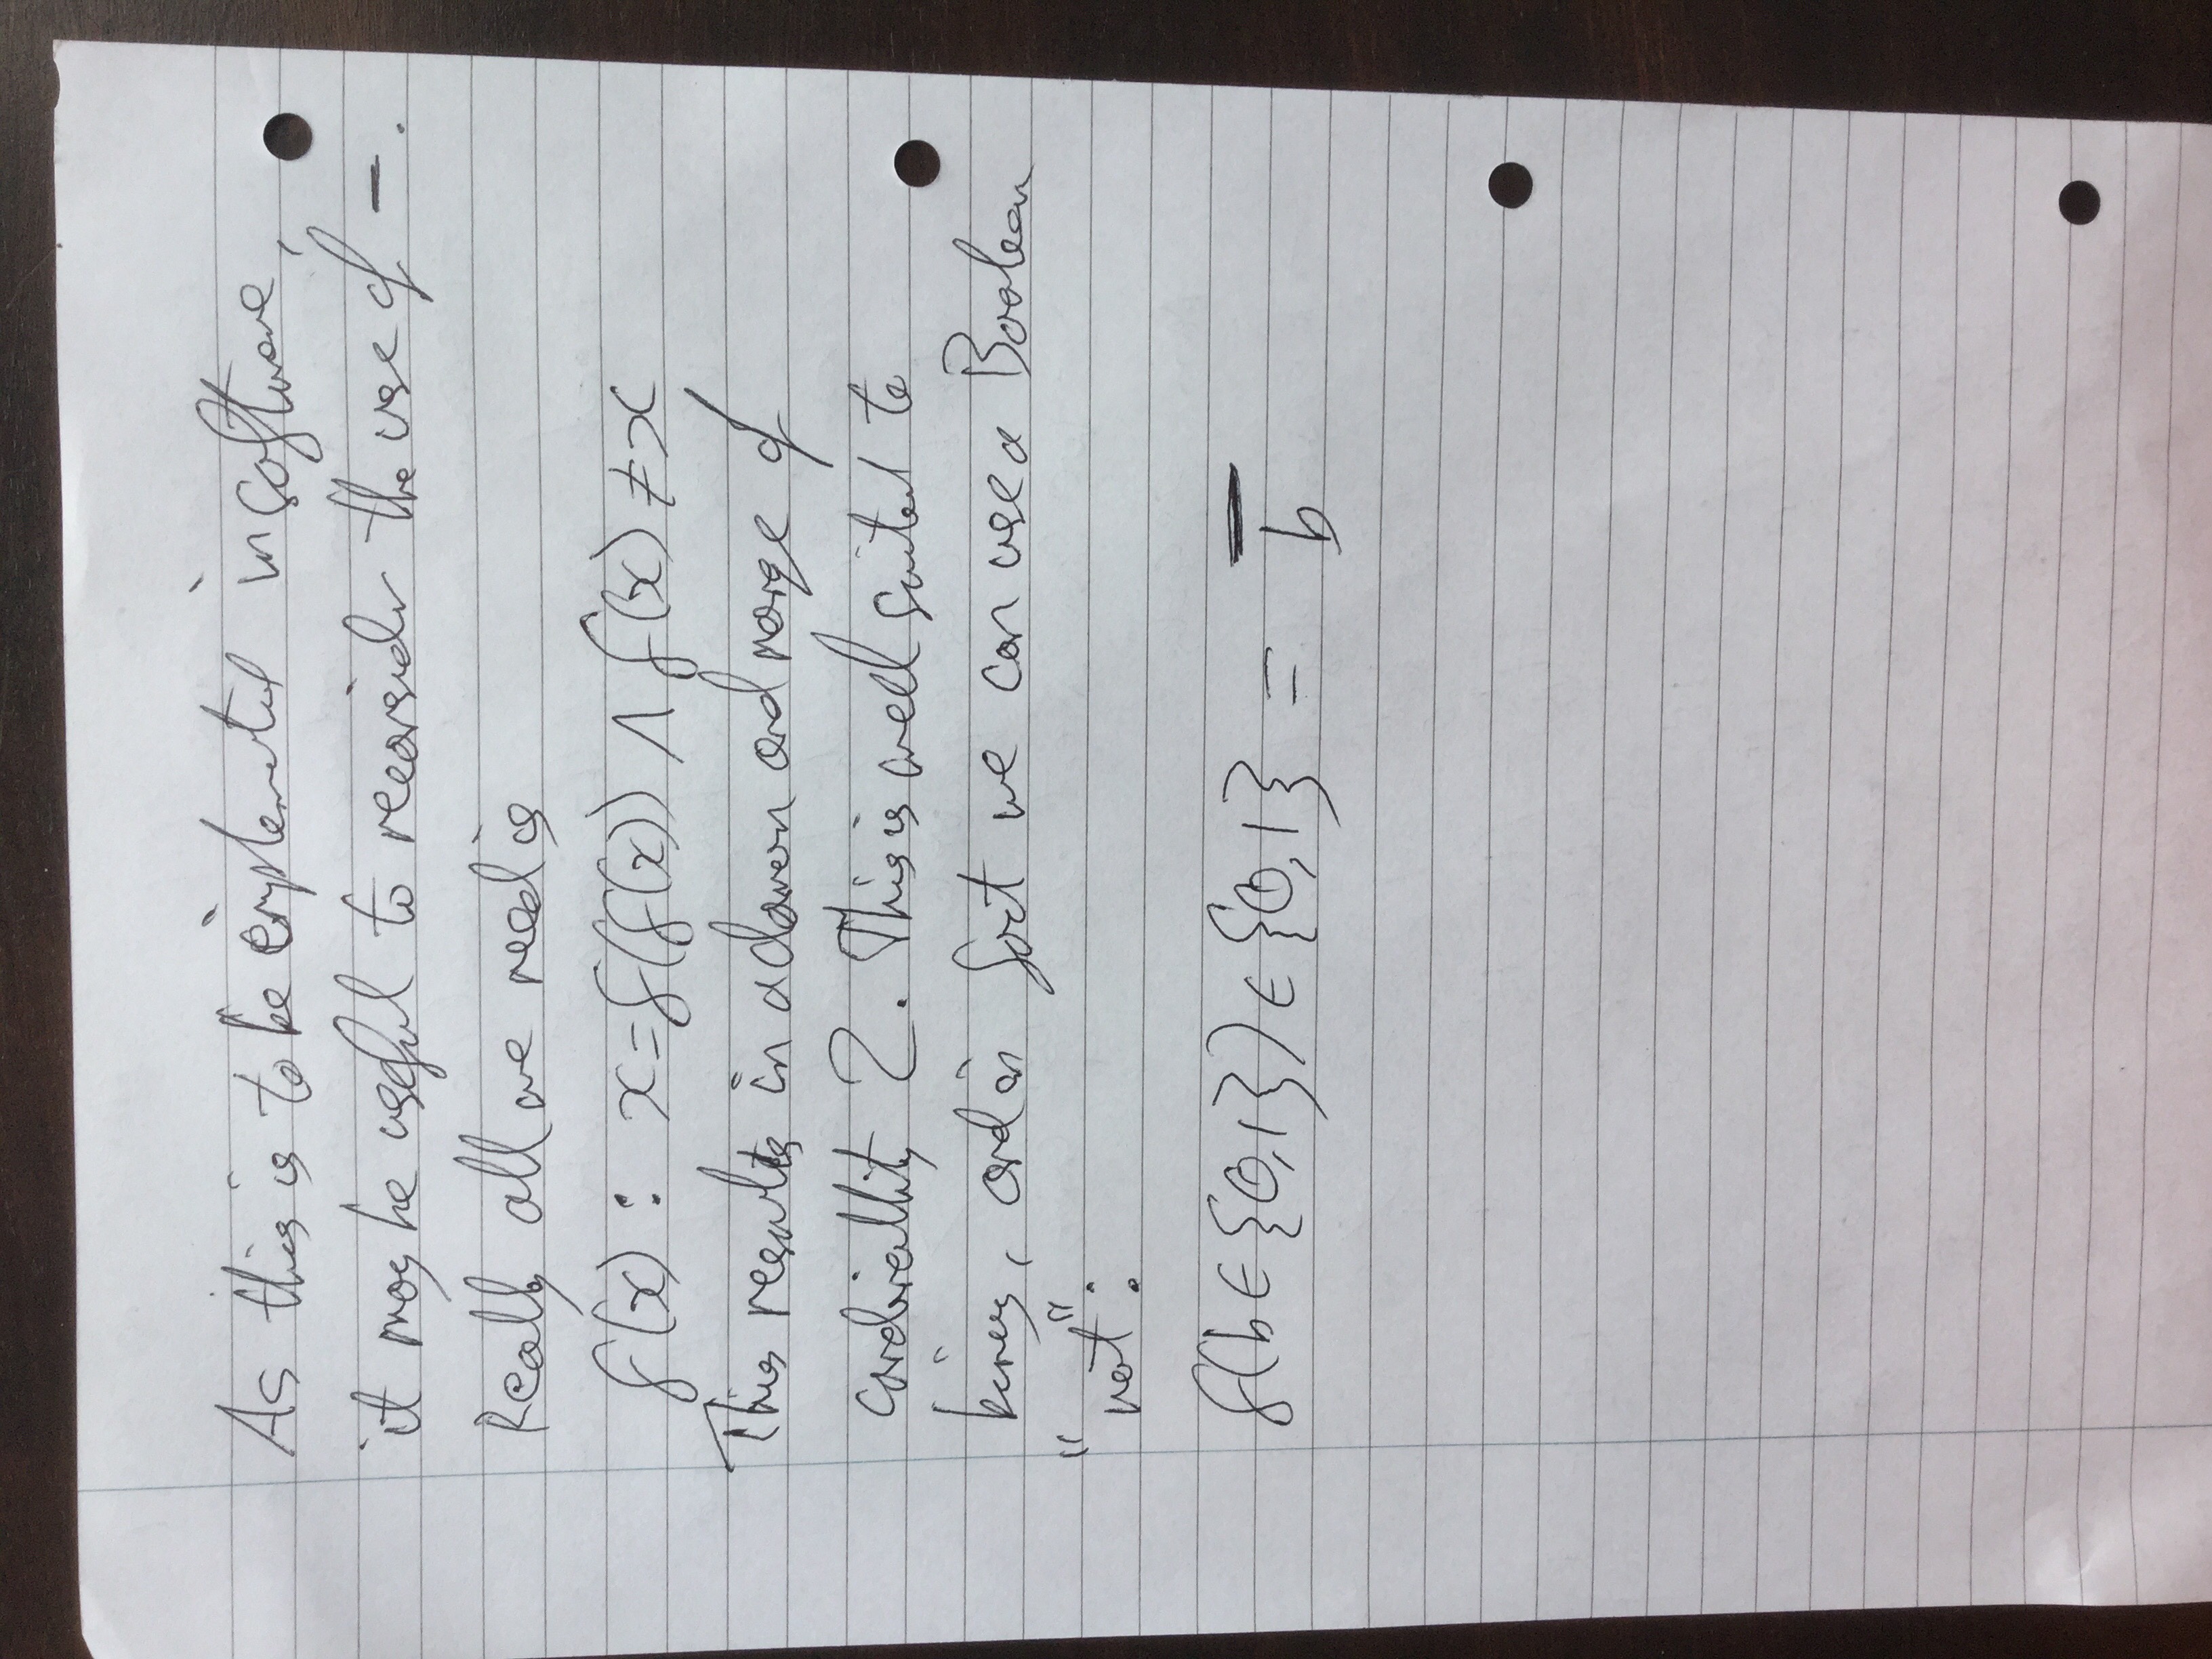 As this is to be implemented in software,
it may be useful to reconsider the use of —.
Really all we need is
f(x) : x=f(f(x)) ∧ f(x) ≠ x
This results in a domain and range of
cardinallity 2. This is well suited to
binary, and in fact we can use a Boolean
"not":
f(b ∈ {0,1}) ∈ {0,1} = b̅